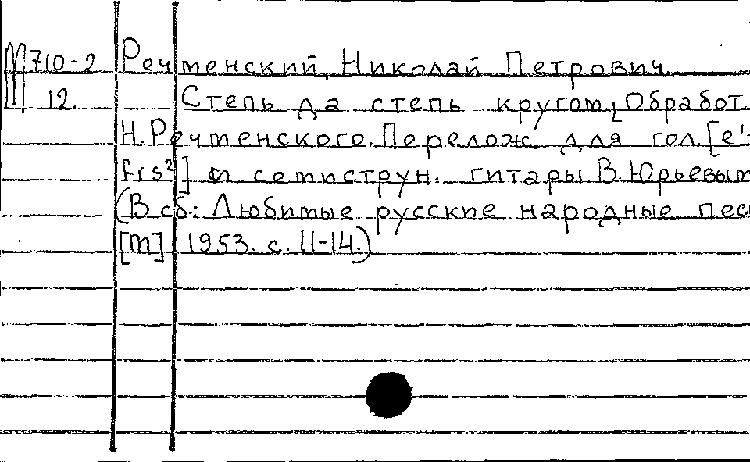 М710-2 Речменский, Николай Петрович.
12. Степь да степь кругом, Обработ
Н.Речменского. Перелож. для гол. [e'-
fis²] и семиструн. гитары В. Юрьевым
(В сб.: Любимые русские народные пес
[М] 1953. с. 11-14.)